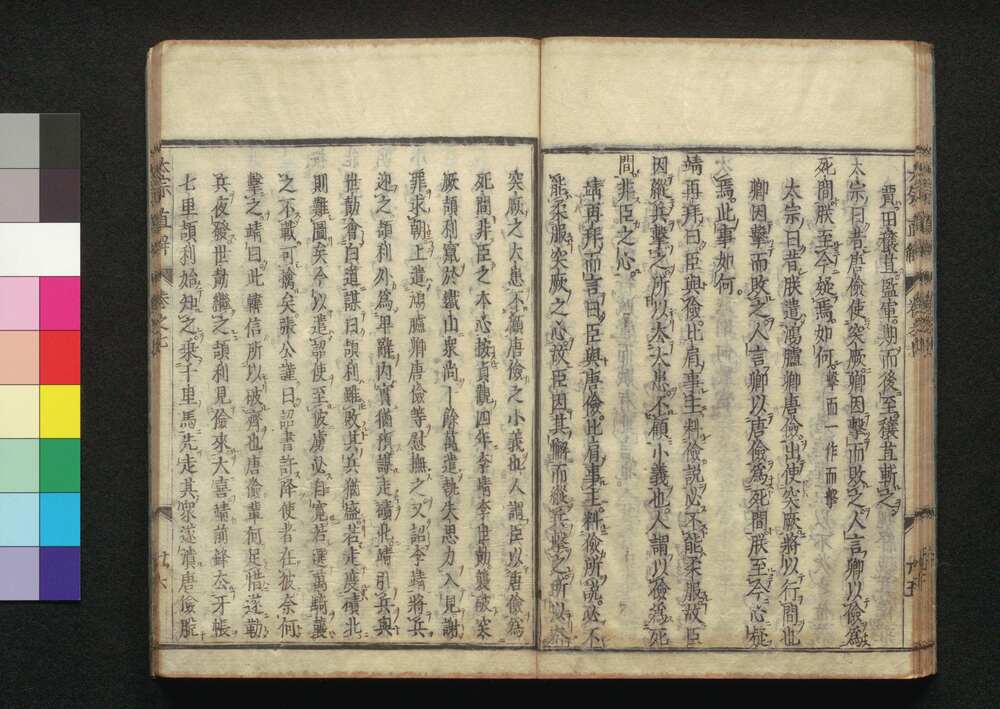 賈田穰苴監軍期而後至穰苴斬之
太宗曰昔唐儉使突厥卿因擊而敗之人言卿以儉爲
死間朕至今疑焉如何擊而一作而擊
太宗曰昔朕遣鴻臚卿唐儉出使突厥將以行間也
卿因擊而敗之人言卿以唐儉爲死間朕至今心疑
焉此事如何
靖再拜曰臣與儉比肩事主料儉說必不能柔服故臣
因縱兵擊之所以去大患不顧小義也人謂以儉爲死
間非臣之心
靖再拜而言曰臣與唐儉比肩事主料儉所說必不
能柔服突厥之心故臣因其懈而縱兵擊之所以去
突厥之大患不顧唐儉之小義也人謂臣以唐儉爲
死間非臣之本心按貞觀四年李靖李世勣襲破突
厥頡利竄於鐵山衆尚十餘萬遣執失思力入見謝
罪求朝上遣鴻臚卿唐儉等慰撫之又詔李靖將兵
迎之頡利外爲卑辭內實猶豫謀走磧北靖引兵與
世勣會白道謀曰頡利雖敗其兵猶盛若走度磧北
則難圖矣今以遣詔使至彼虜必自寬若選萬騎襲
之不戰可擒矣張公謹曰詔書許降使者在彼奈何
擊之靖曰此韓信所以破齊也唐儉輩何足惜遂勒
兵夜發世勣繼之頡利見儉來大喜靖前鋒去牙帳
七里頡利始知之乘千里馬先走其衆遂潰唐儉脫
直解
卷之七
廿六